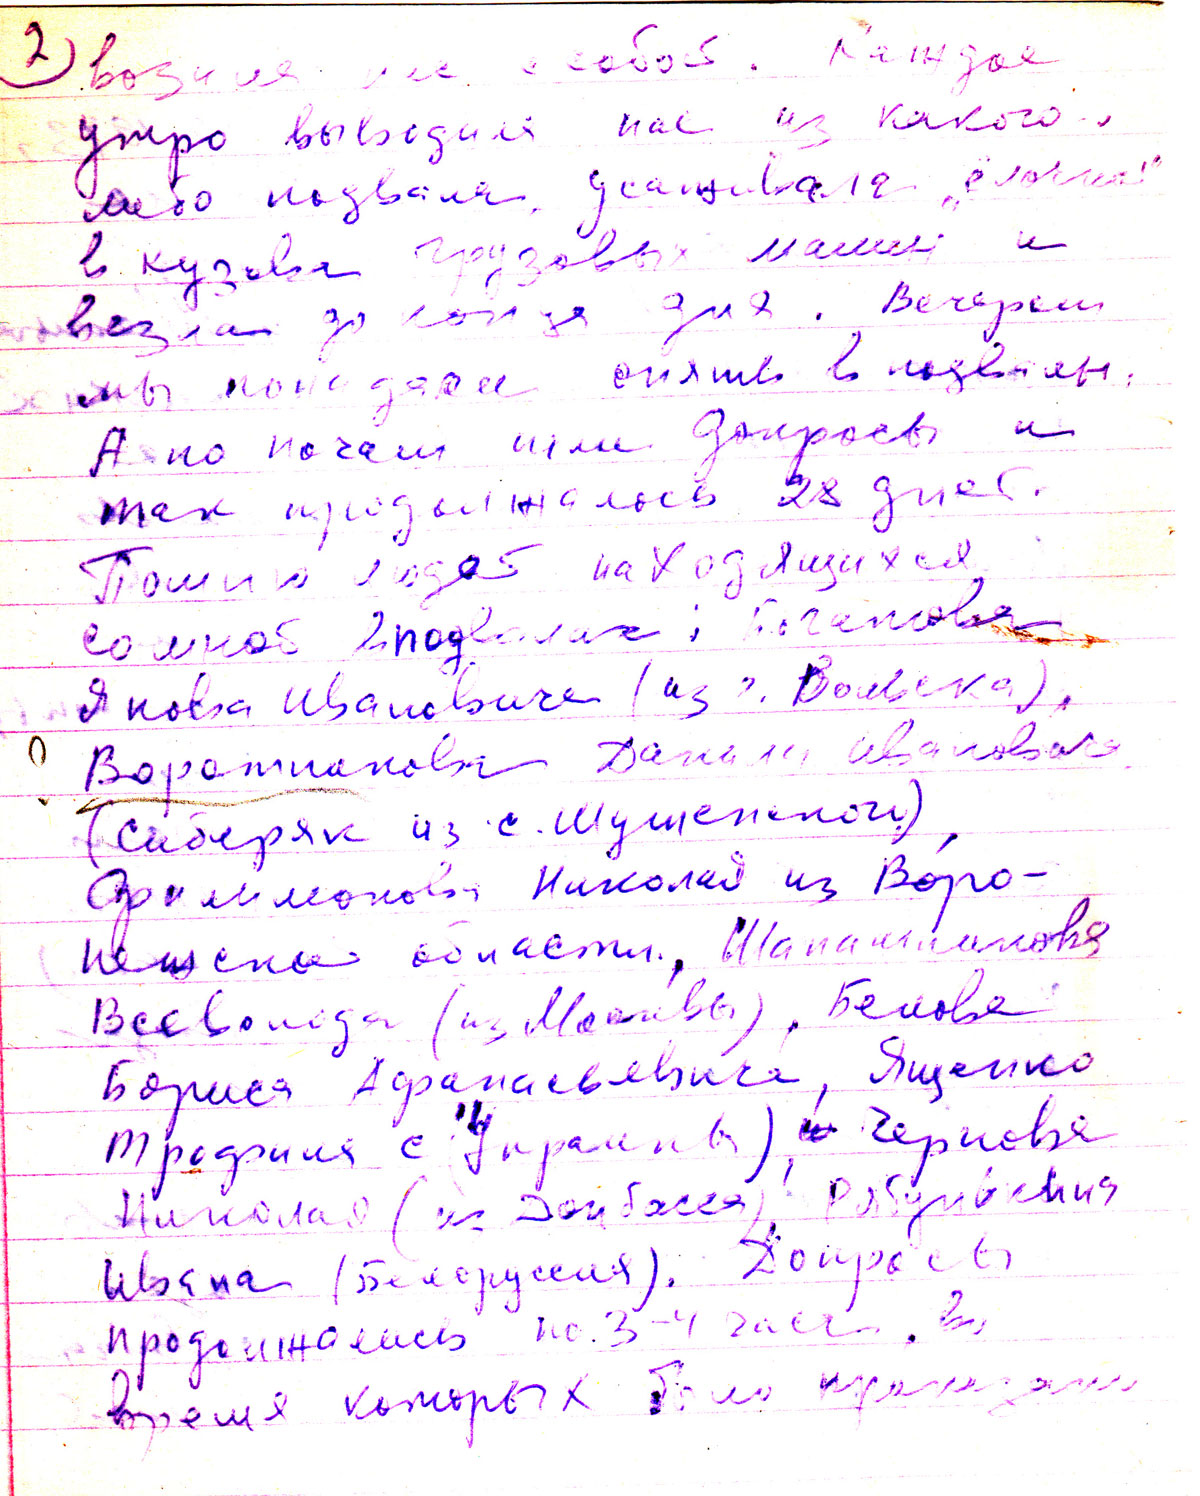 2) возили нас с собой. Каждое
утро выводили нас из какого-
либо подвала, усаживали „ёлочкой"
в кузова грузовых машин и
везли до конца дня. Вечером
мы попадали опять в подвалы.
А по ночам шли допросы и
так продолжалось 28 дней.
Помню людей находящихся
со мной в подвалах: Богатова
Якова Ивановича (из г. Вольска),
Воротникова Данилы Ивановича
(сибиряк из с. Шушенского),
Филимонова Николая из Воро-
нежской области, Шапашникова
Всеволода (из Москвы), Белова
Бориса Афанасьевича, Ященко
Трофима с Украины), Чернова
Николая (из Донбасса), Рябушкина
Ивана (Белоруссия). Допросы
продолжались по 3-4 часа, во
время которых было